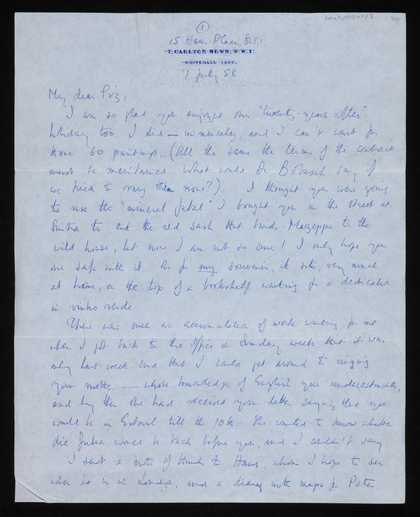 (1)
15 Hans Place, S.W.1
7, CARLTON MEWS, S.W.1.
WHITEHALL
7 July 58
My dear
I am so glad you enjoyed our "twenty-years after"
holiday too. I did — immensely, and I can't wait for
those 60 paintings. (All the same the terms of the contract
must be maintained. What would Dr B say if
we tried to vary them now?). I thought you were going
to use the "mineral" I bought you in the street at
to cut the old sash that binds Mazeppa to the
wild horse, but now I am not so sure! I only hope you
are safe with it. As for my souvenir, it sits, very much
at home, on the top of a bookshelf waiting for a dedication
in vinho verde.
There was such an accumulation of work waiting for me
when I got back to the office on Sunday week that it was
only last week-end that I could get around to ringing
your mother — whose knowledge of English you underestimate,
and by then she had received your letter saying that you
would be in till the 10th. She wanted to know whether
did Julia were to be back before you, and I couldn't say.
I sent a note of thanks to Hans, whom I hope to see
when he is in London, and a diary with maps for Peter